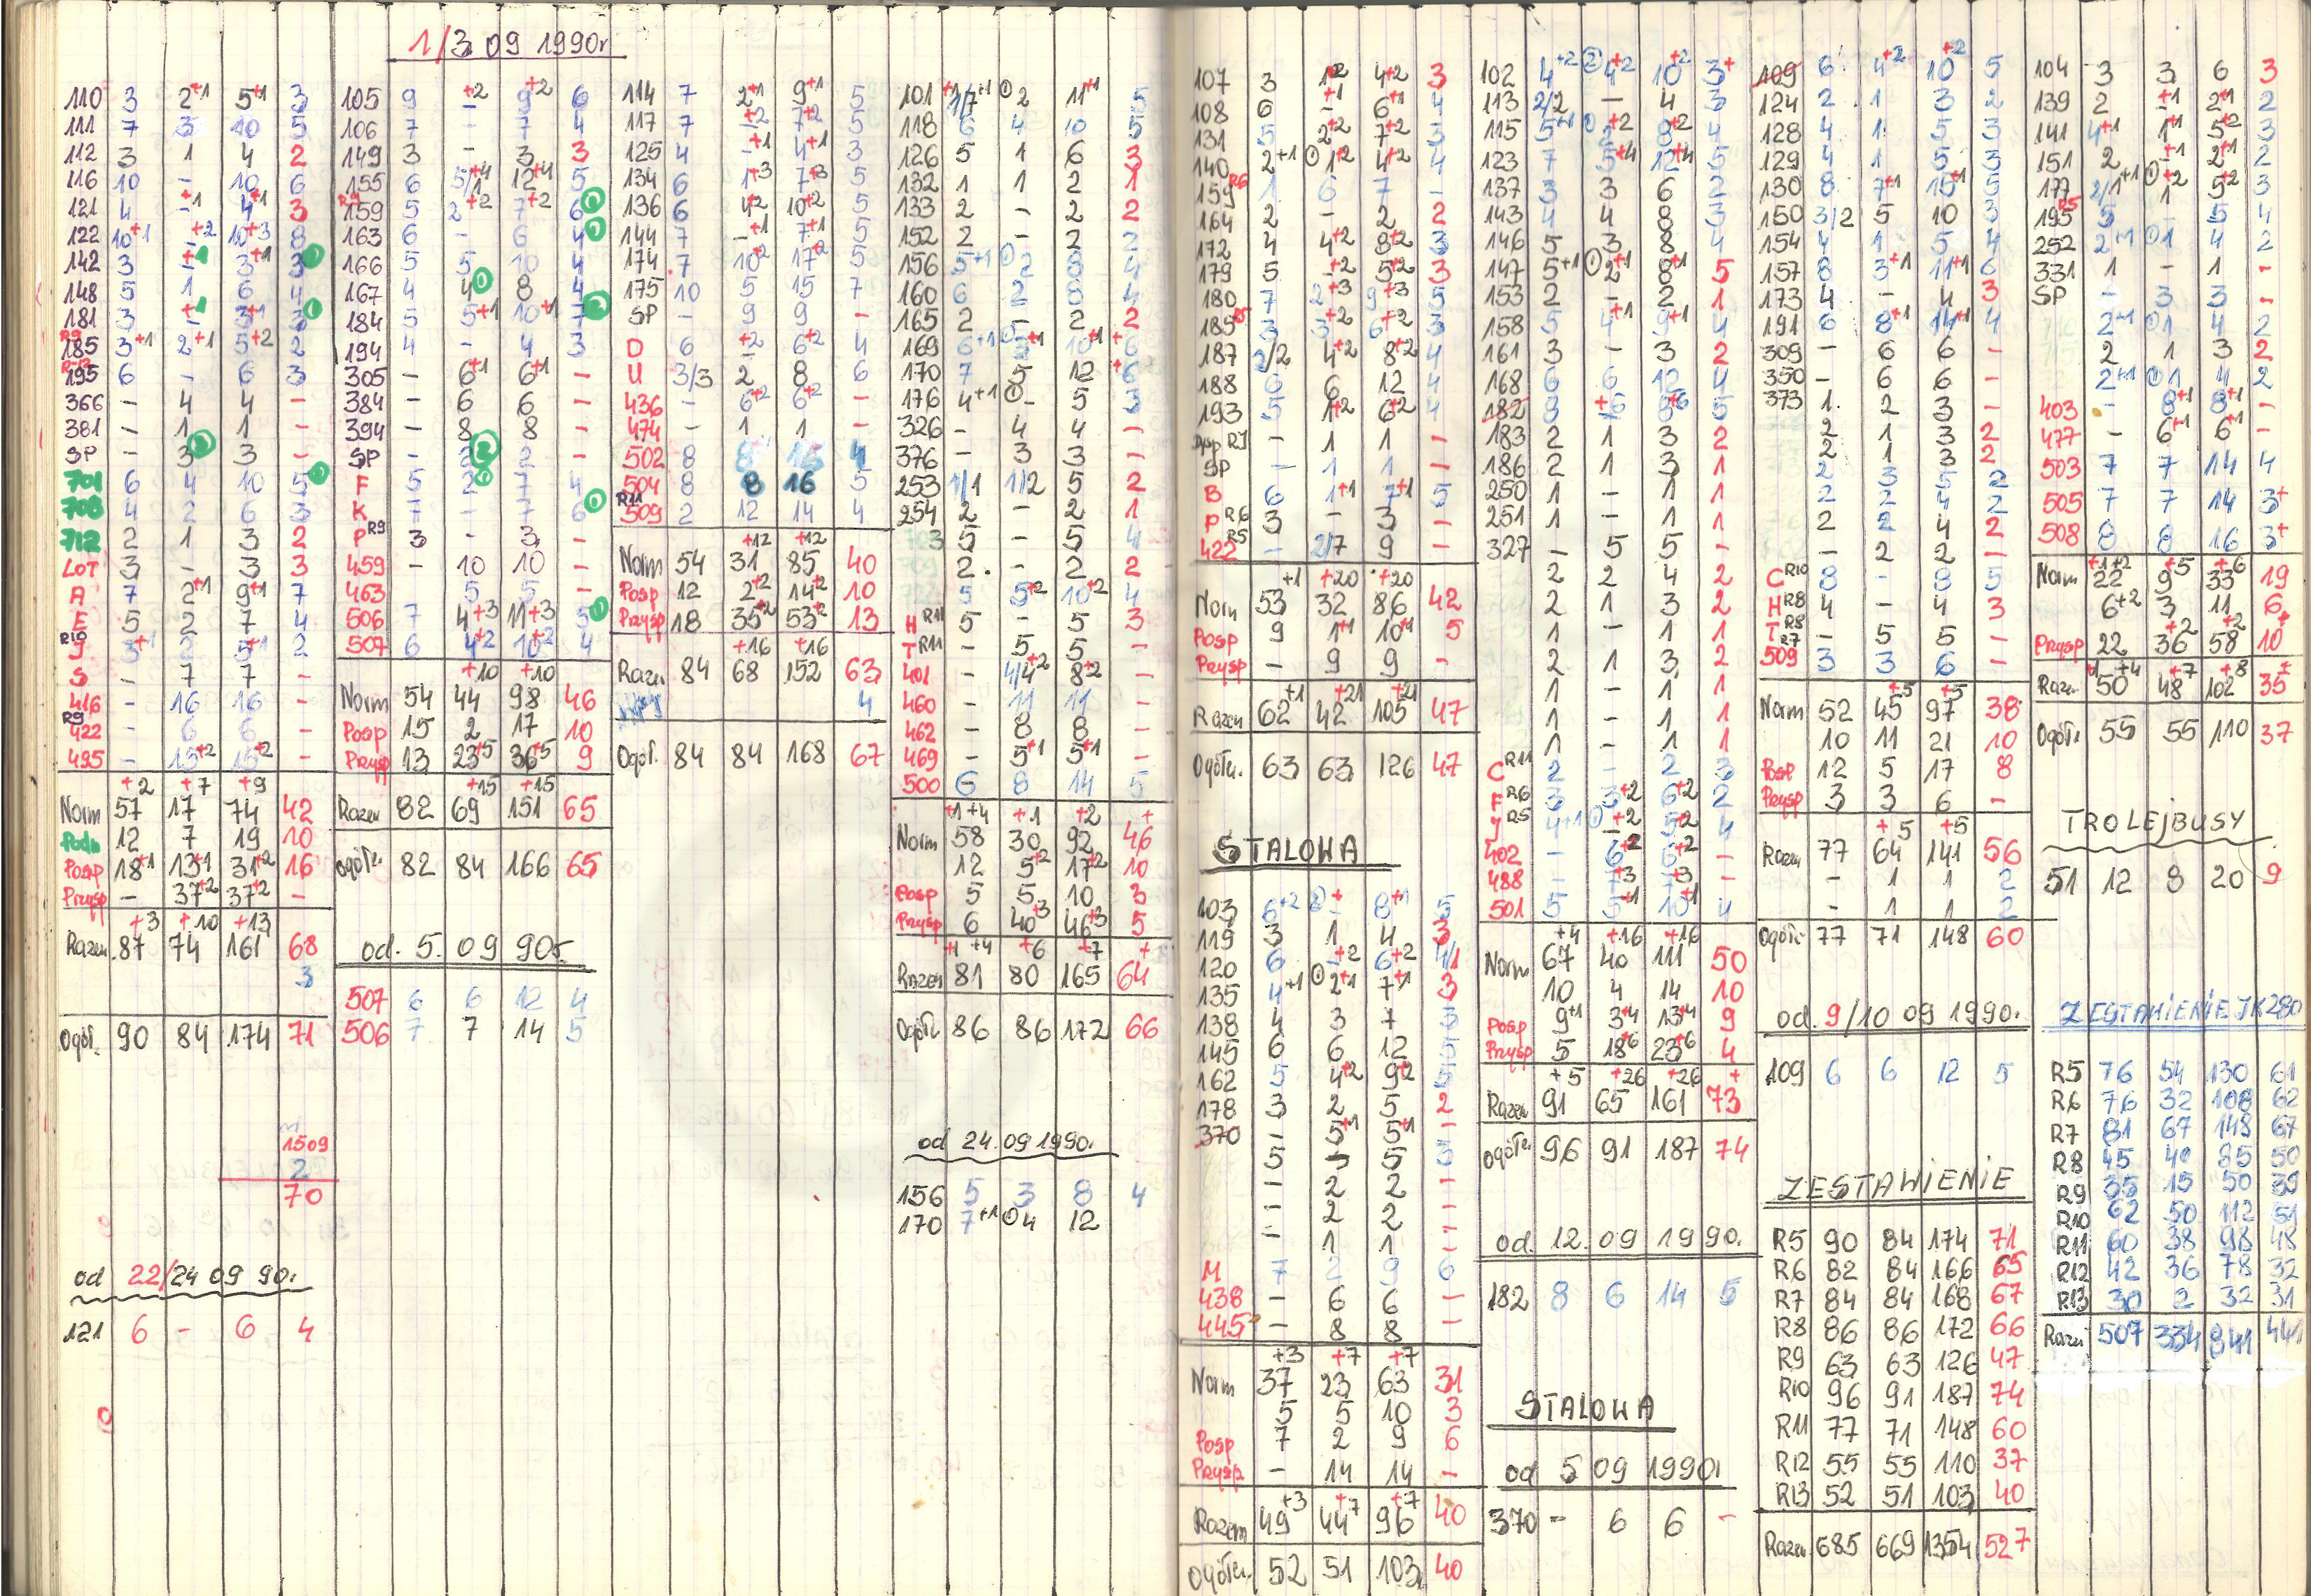 1/3 09 1990r
110 3 2+1 5+1 3
111 7 3 10 5
112 3 1 4 2
116 10 - 10 6
121 4 -+1 4+1 3
122 10+1 -+2 10+3 8
142 3 -+1 3+1 3
148 5 1 6 4
181 3 -+1 3+1 3
R9 185 3+1 2+1 5+2 2
195 6 - 6 3
366 - 4 4 -
381 - 1 1 -
SP - 3 3 -
701 6 4 10 5
708 4 2 6 3
712 2 1 3 2
LOT 3 - 3 3
A 7 2+1 9+1 7
E 5 2 7 4
R10 J 3+1 2 5+1 2
S - 7 7 -
416 - 16 16 -
R9 422 - 6 6 -
495 - 15+2 15+2 -
+2 +7 +9
Norm 57 17 74 42
Podm 12 7 19 10
Posp 18+1 13+1 31+2 16
Przysp - 37+2 37+2 -
+3 +10 +13
Razem 87 74 161 68
3
Ogół. 90 84 174 71
1509
2
70
od 22/24 09 90r.
121 6 - 6 4
105 9 -+2 9+2 6
106 7 - 7 4
149 3 - 3 3
155 6 5/1+4 12+4 5
R9 159 5 2+2 7+2 6
163 6 - 6 4
166 5 5 10 4
167 4 4 8 4
184 5 5+1 10+1 7
194 4 - 4 3
305 - 6+1 6+1 -
384 - 6 6 -
394 - 8 8 -
SP - 2 2 -
F 5 2 7 4
K 7 - 7 6
P R9 3 - 3 -
459 - 10 10 -
463 - 5 5 -
506 7 4+3 11+3 5
507 6 4+2 10+2 4
+10 +10
Norm 54 44 98 46
Posp 15 2 17 10
Przysp 13 23+5 36+5 9
+15 +15
Razem 82 69 151 65
Ogółe. 82 84 166 65
od. 5. 09 90r.
507 6 6 12 4
506 7 7 14 5
114 7 2+1 9+1 5
117 7 -+2 7+2 5
125 4 -+1 4+1 3
134 6 1+3 7+3 5
136 6 4+2 10+2 5
144 7 -+1 7+1 5
174 7 10+2 17+2 5
175 10 5 15 7
SP - 9 9 -
D 6 -+2 6+2 4
U 3/3 2 8 6
436 - 6+2 6+2 -
474 - 1 1 -
502 8 8 16 4
504 8 8 16 5
R11 509 2 12 14 4
+12 +12
Norm 54 31 85 40
Posp 12 2+2 14+2 10
Przysp 18 35+2 53+2 13
+16 +16
Razem 84 68 152 63
4
Ogół. 84 84 168 67
101 1/7+1 2 11+1 5
118 6 4 10 5
126 5 1 6 3
132 1 1 2 1
133 2 - 2 2
152 2 - 2 2
156 5+1 2 8 4
160 6 2 8 4
165 2 - 2 2
169 6+1 3+1 10+1 6
170 7 5 12 6
176 4+1 - 5 3
326 - 4 4 -
376 - 3 3 -
253 1/1 1/2 5 2
254 2 - 2 1
5 - 5 4
2 - 2 2
5 5+2 10+2 4
H R11 5 - 5 3
T R11 - 5 5 -
401 - 4/4+2 8+2 -
460 - 11 11 -
462 - 8 8 -
469 - 5+1 5+1 -
500 6 8 14 5
+1 +4 +1 +2 +
Norm 58 30 92 46
12 5+2 17+2 10
Posp 5 5 10 3
Przysp 6 40+3 46+3 5
+1 +4 +6 +7 +
Razem 81 80 165 64
Ogółe 86 86 172 66
od 24.09 1990r.
156 5 3 8 4
170 7+1 4 12
107 3 1+2 4+2 3
108 6 -+1 6+1 4
131 5 2+2 7+2 3
140 2+1 1+2 4+2 4
159 R6 1 6 7 -
164 2 - 2 2
172 4 4+2 8+2 3
179 5 -+2 5+2 3
180 7 2+3 9+3 5
185 R5 3 3+2 6+2 3
187 2/2 4+2 8+2 4
188 6 6 12 4
193 5 1+2 6+2 4
R7 - 1 1 -
SP - 1 1 -
B 6 1+1 7+1 5
P R6 3 - 3 -
422 R5 - 2/7 9 -
+1 +20 +20
Norm 53 32 86 42
Posp 9 1+1 10+1 5
Przysp - 9 9 -
Razem 62+1 42+21 105+21 47
Ogółe. 63 63 126 47
STALOWA
103 6+2 -+ 8+1 5
119 3 1 4 3
120 6 -+2 6+2 4/1
135 4+1 2+1 7+1 3
138 4 3 7 3
145 6 6 12 5
162 5 4+2 9+2 5
178 3 2 5 2
370 - 5+1 5+1 -
5 - 5 3
- 2 2 -
- 2 2 -
- 1 1 -
M 7 2 9 6
438 - 6 6 -
445 - 8 8 -
+3 +7 +7
Norm 37 23 63 31
5 5 10 3
Posp 7 2 9 6
Przysp - 14 14 -
Razem 49+3 44+7 96+7 40
Ogółe. 52 51 103 40
102 4+2 4+2 10+2 3+
113 2/2 - 4 3
115 5+1 2+2 8+2 4
123 7 5+4 12+4 5
137 3 3 6 2
143 4 4 8 3
146 5 3 8 4
147 5+1 2+1 8+1 5
153 2 - 2 1
158 5 4+1 9+1 4
161 3 - 3 2
168 6 6 12 4
182 8 -+6 8+6 5
183 2 1 3 2
186 2 1 3 1
250 1 - 1 1
251 1 - 1 1
327 - 5 5 -
2 2 4 2
2 1 3 2
1 - 1 1
2 1 3 2
1 - 1 1
1 - 1 1
1 - 1 1
C R11 2 - 2 3
F R6 3 3+2 6+2 2
J R5 4+1 -+2 5+2 4
402 - 6+2 6+2 -
488 - 7+3 7+3 -
501 5 5+1 10+1 4
+4 +16 +16
Norm 67 40 111 50
10 4 14 10
Posp 9+1 3+4 13+4 9
Przysp 5 18+6 23+6 4
+5 +26 +26 +
Razem 91 65 161 73
Ogółe. 96 91 187 74
od. 12. 09 1990.
182 8 6 14 5
STALOWA
od 5 09 1990r
370 - 6 6 -
109 6 4+2 10+2 5
124 2 1 3 2
128 4 1 5 3
129 4 1 5 3
130 8 7+1 15+1 5
150 3/2 5 10 3
154 4 1 5 4
157 8 3+1 11+1 6
173 4 - 4 3
191 6 8+1 14+1 4
309 - 6 6 -
350 - 6 6 -
373 1 2 3 -
2 1 3 2
2 1 3 2
2 3 5 2
2 2 4 2
2 2 4 2
- 2 2 -
C R10 8 - 8 5
H R8 4 - 4 3
T R8 - 5 5 -
R7 509 3 3 6 -
Norm 52 45+5 97+5 38
10 11 21 10
Posp 12 5 17 8
Przysp 3 3 6 -
+5 +5
Razem 77 64 141 56
- 1 1 2
- 1 1 2
Ogółe 77 71 148 60
od. 9/10 09 1990r.
109 6 6 12 5
ZESTAWIENIE
R5 90 84 174 71
R6 82 84 166 65
R7 84 84 168 67
R8 86 86 172 66
R9 63 63 126 47
R10 96 91 187 74
R11 77 71 148 60
R12 55 55 110 37
R13 52 51 103 40
Razem 685 669 1354 527
104 3 3 6 3
139 2 -+1 2+1 2
141 4+1 1+1 5+2 3
151 2 -+1 2+1 2
177 2/1+1 1+2 5+2 3
195 R5 5 - 5 4
252 2+1 1 4 2
331 1 - 1 -
SP - 3 3 -
2+1 1 4 2
2 1 3 2
2+1 1 4 2
403 - 8+1 8+1 -
477 - 6+1 6+1 -
503 7 7 14 4
505 7 7 14 3+
508 8 8 16 3+
Norm 22+1+2 9+5 33+6 19
6+2 3 11 6
Przysp 22 36+2 58+2 10+
Razem 50+1+4 48+7 102+8 35+
Ogółe 55 55 110 37
TROLEJBUSY
51 12 8 20 9
ZESTAWIENIE JK280
R5 76 54 130 61
R6 76 32 108 62
R7 81 67 148 67
R8 45 40 85 50
R9 35 15 50 39
R10 62 50 112 51
R11 60 38 98 48
R12 42 36 78 32
R13 30 2 32 31
Razem 507 334 841 441